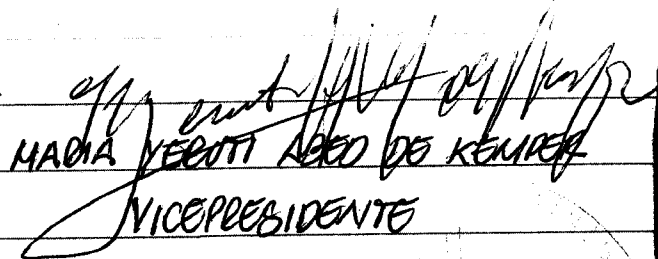 MARIA YERUTI ABED DE KEMPER
VICEPRESIDENTE